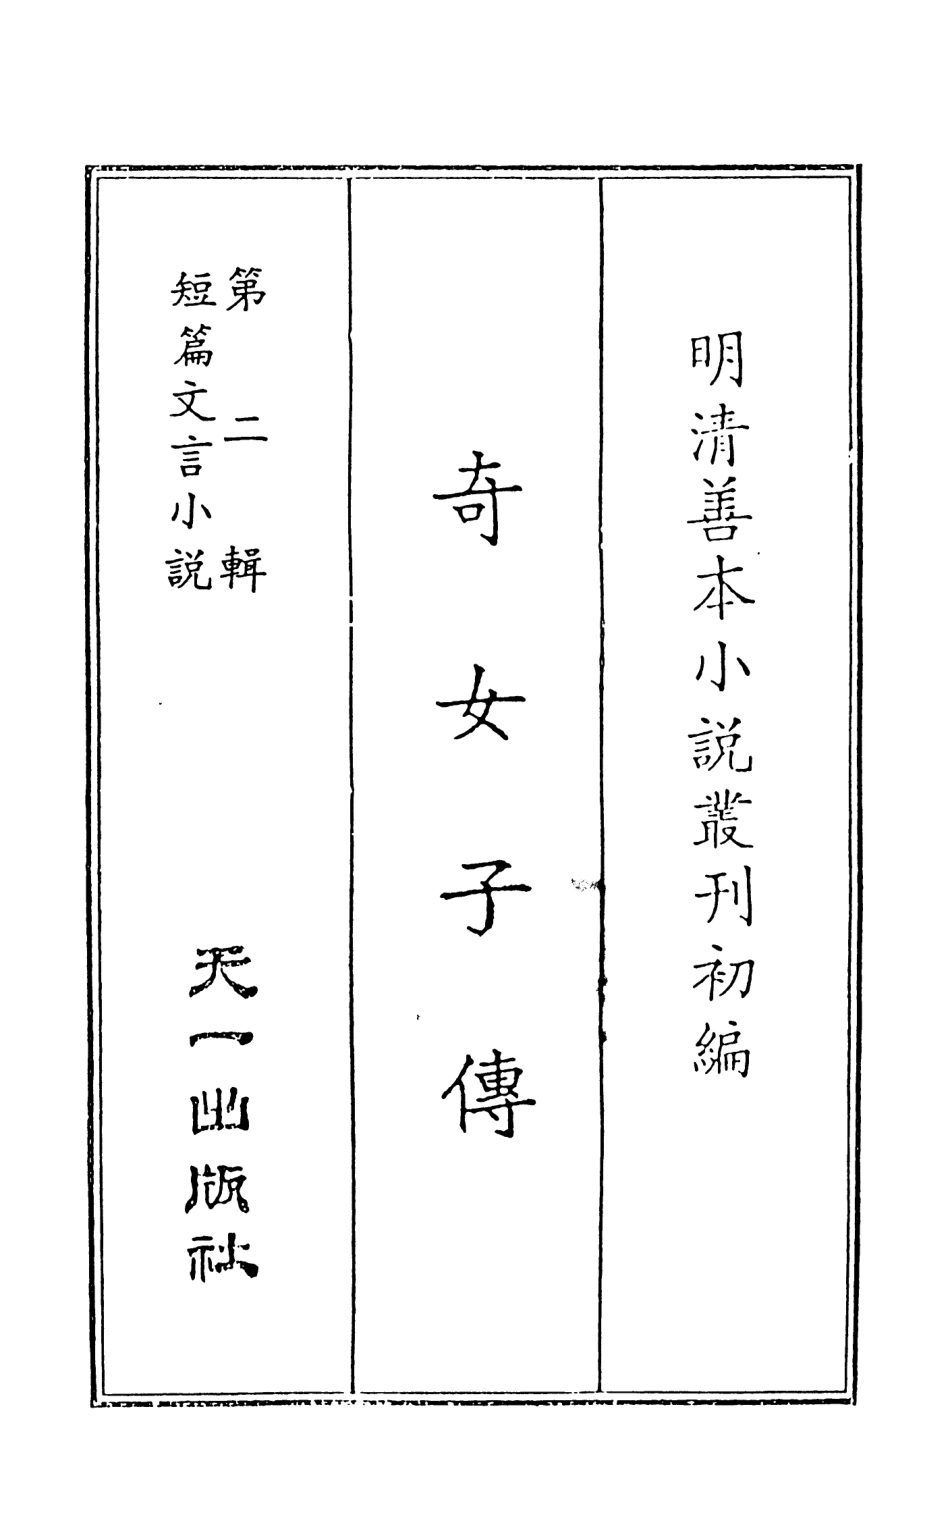 明清善本小説叢刊初編
奇女子傳
第二輯
短篇文言小説
天一出版社